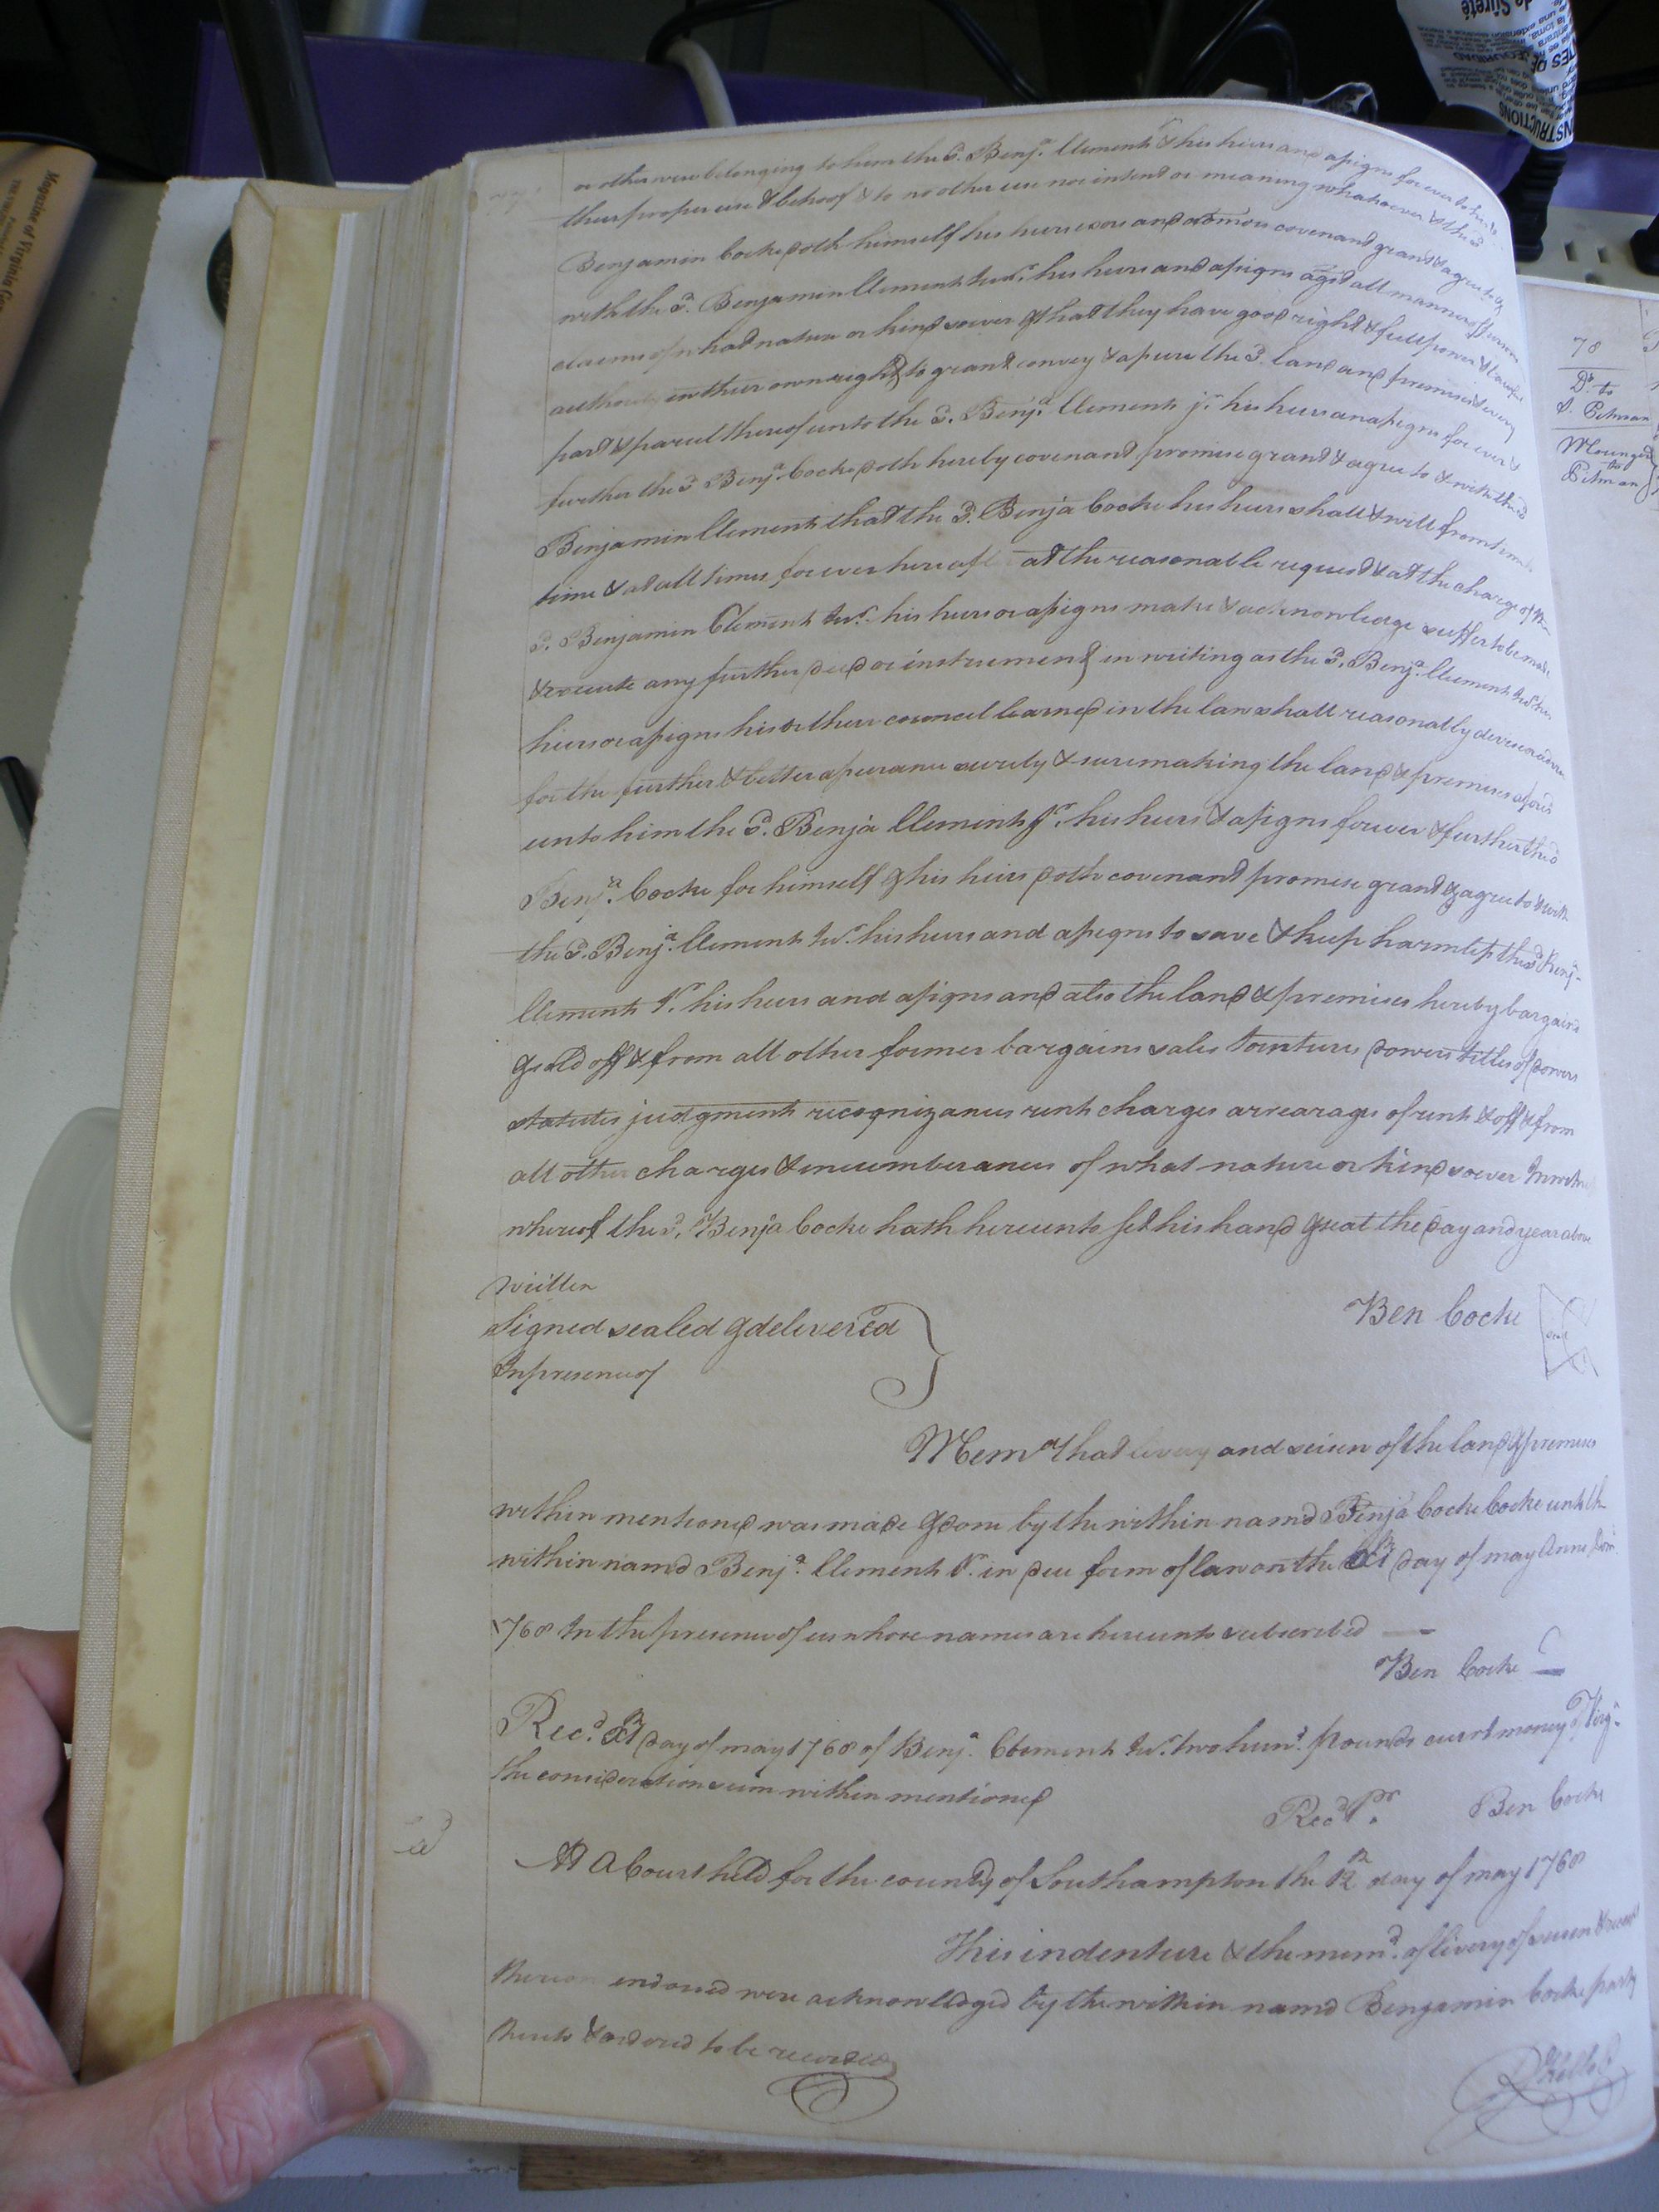 or otherwise belonging to him the sd. Benja. Clements & his heirs and assigns for ever to his &
their proper use & behoof & to no other use nor intent or meaning whatsoever & the sd
Benjamin Cocke doth himself his heirs exors and admors covenant grant & agree to &
with the sd. Benjamin Clements Junr. his heirs and assigns agst all manner of persons
claims of what nature or kind soever & that they have good right & full power & lawful
authority in their own right to grant convey & assure the sd. land and premises & every
part & parcel thereof unto the sd. Benja. Clements jr. his heirs and assigns for ever &
further the sd Benja. Cocke doth hereby covenant promise grant & agree to & with the sd
Benjamin Clements that the sd. Benja Cocke his heirs shall & will from time to
time & at all times forever hereaft at the reasonable request & at the charge of the
sd. Benjamin Clements Junr. his heirs or assigns make & acknowledge suffer to be made
& execute any further deed or instrument in writing as the sd. Benja. Clements Junr his
heirs or assigns his or their council learned in the law shall reasonably devise
for the further & better assurance surety & sure making the land & premises afores'd
unto him the sd. Benja Clements Jr. his heirs & assigns forever & further the sd
Benja. Cocke for himself & his heirs doth covenant promise grant & agree to & with
the sd. Benja. Clements Junr. his heirs and assigns to save & keep harmless the sd Benja.
Clements Jr. his heirs and assigns and also the land & premises hereby bargain'd
& sold off & from all other former bargains sales Jointures dowers titles of dowers
statutes judgments recognizances rents charges arrearages of rents & off & from
all other charges & incumberances of what nature or kind soever In witness
whereof the sd. Benja Cocke hath hereunto set his hand & seal the day and year above
written
Signed sealed & delivered
In presence of
Ben Cocke
seal
Memo. that livery and seisen of the land & premises
within mentioned was made & done by the within nam'd Benja Cocke Cocke unto the
within nam'd Benja. Clements Jr. in due form of law on the day of may Anno Dom
1768 In the presence of us whose names are hereunto subscrib'd —
Ben Cocke
Recd. day of may 1768 of Benja. Clements Junr. two hund. pounds currt money of Virga.
the consideration sum within mentioned
Recd. pr. Ben Cocke
At a Court held for the county of Southampton the 12 day of may 1768
This indenture & the memd. of livery of seisen & receit
thereon endorsed were acknowledged by the within nam'd Benjamin Cocke party
thereto & ordered to be recorded
78
Do. to
S. Pitman
Mounger
to
Pitman
Magazine of Virginia Ge
INSTRUCTIONS
de Sûreté